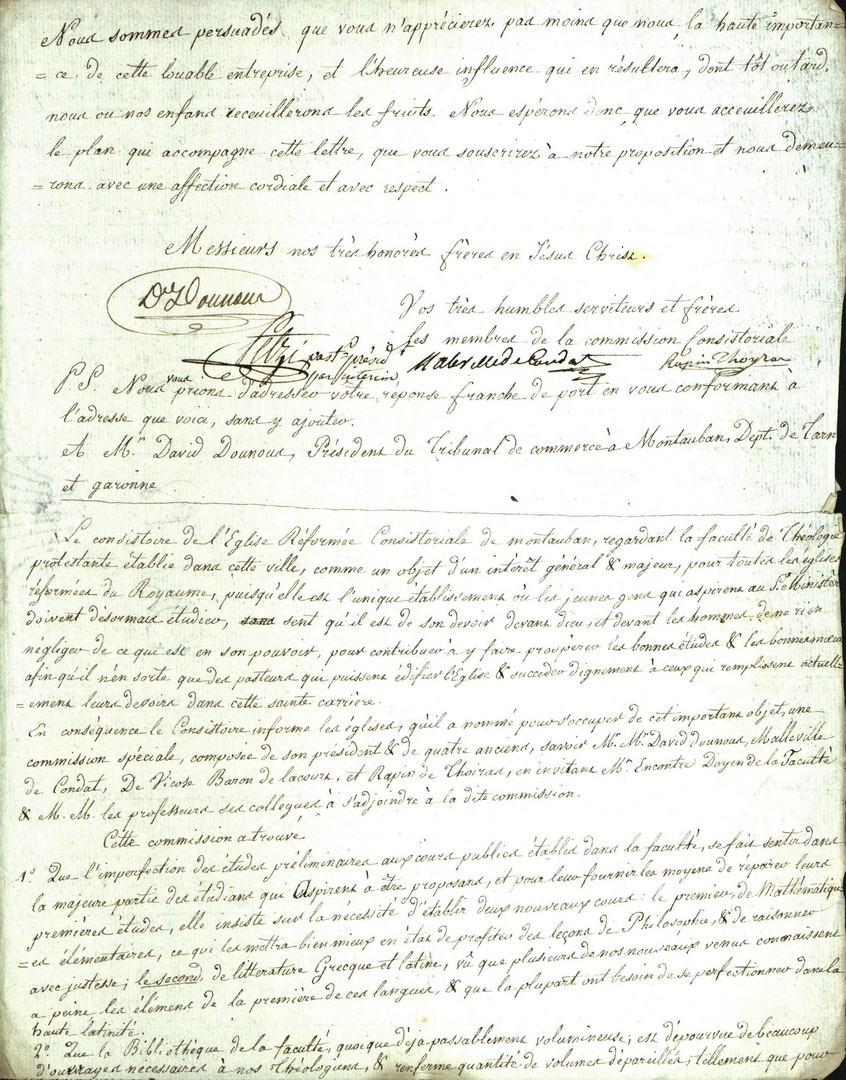 Nous sommes persuadés que vous n'apprécierez pas moins que nous, la haute importan=
=ce de cette louable entreprise, et l'heureuse influence qui en résultera, dont tôt ou tard,
nous ou nos enfans receuillerons les fruits. Nous espérons donc que vous acceuillerez
le plan qui accompagne cette lettre, que vous souscrirez à notre proposition et nous demeu=
=rons avec une affection cordiale et avec respect.
Messieurs nos très honorés frères en Jésus Christ.
Dd Dounous
Vos très humbles serviteurs et frères
Les membres de la commission Consistoriale
past. présidt Malleville de Condat Rapin Thoyras
par interim
P. S. Nous vous prions d'adresser votre réponse franche de port en vous conformant à
l'adresse que voici, sans y ajouter.
A Mr. David Dounous, Président du Tribunal de commerce à Montauban, Dept. de Tarn
et garonne.
Le consistoire de l'Eglise Réformée Consistoriale de montauban, regardant la faculté de Théologie
protestante établie dans cette ville, comme un objet d'un intérêt général & majeur, pour toutes les églises
réformées du Royaume, puisqu'elle est l'unique établissement où les jeunes gens qui aspirent au St. Ministère
doivent désormais étudier, sans sent qu'il est de son devoir devant dieu, et devant les hommes, de ne rien
négliger de ce qui est en son pouvoir, pour contribuer à y faire prospérer les bonnes études & les bonnes mœurs
afin qu'il n'en sorte que des pasteurs qui puissent édifier l'Eglise & succéder dignement à ceux qui remplissent actuell=
=ement leurs devoirs dans cette sainte carrière.
En conséquence le Consistoire informe les églises, qu'il a nommé pour s'occuper de cet important objet, une
commission spéciale, composée de son président & de quatre anciens, savoir Mr. Mr. David dounous, Malleville
de Condat, De Vicose Baron de lacour, et Rapin de Thoiras, en invitant Mr. Encontre Doyen de la Faculté
& M. M. les professeurs ses collegues à s'adjoindre à la dite commission.
Cette commission a trouvé
1º. Que l'imperfection des études préliminaires aux cours publics établis dans la faculté, se fait sentir dans
la majeure partie des étudians qui aspirent à être proposans, et pour leur fournir les moyens de réparer leurs
premières études, elle insiste sur la nécessité d'établir deux nouveaux cours : le premier, de Mathématiqu=
=es élémentaires, ce qui les mettra bien mieux en état de profiter des leçons de Philosophie, & de raisonner
avec justesse ; le second, de litterature Grecque et latine, vû que plusieurs de nos nouveaux venus connaissent
a peine les élémens de la première de ces langues, & que la plupart ont besoin de se perfectionner dans la
haute latinité.
2º. Que la Bibliothèque de la faculté, quoique déja passablement volumineuse, est dépourvue de beaucoup
d'ouvrages nécessaires à nos Théologiens, & renferme quantité de volumes dépareillés, tellement que pour